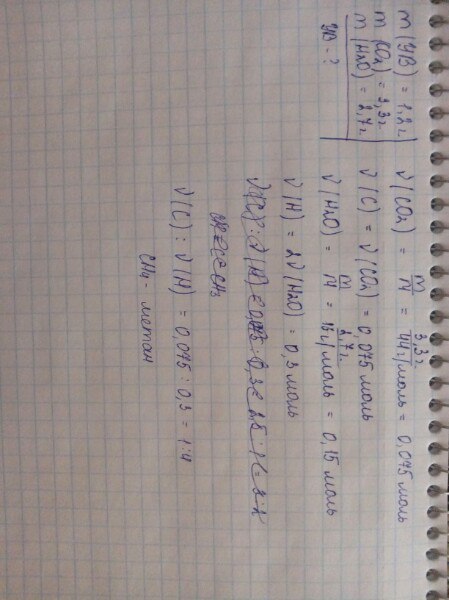 m(УВ) = 1,2 г.
m(CO₂) = 3,3 г.
m(H₂O) = 2,7 г.
УВ - ?
ν(CO₂) = m/M = 3,3 г./44 г/моль = 0,075 моль
ν(C) = ν(CO₂) = 0,075 моль
ν(H₂O) = m/M = 2,7 г./18 г/моль = 0,15 моль
ν(H) = 2ν(H₂O) = 0,3 моль
ν(C) : ν(H) = 0,075 : 0,3 = 1:4
CH₄ - метан